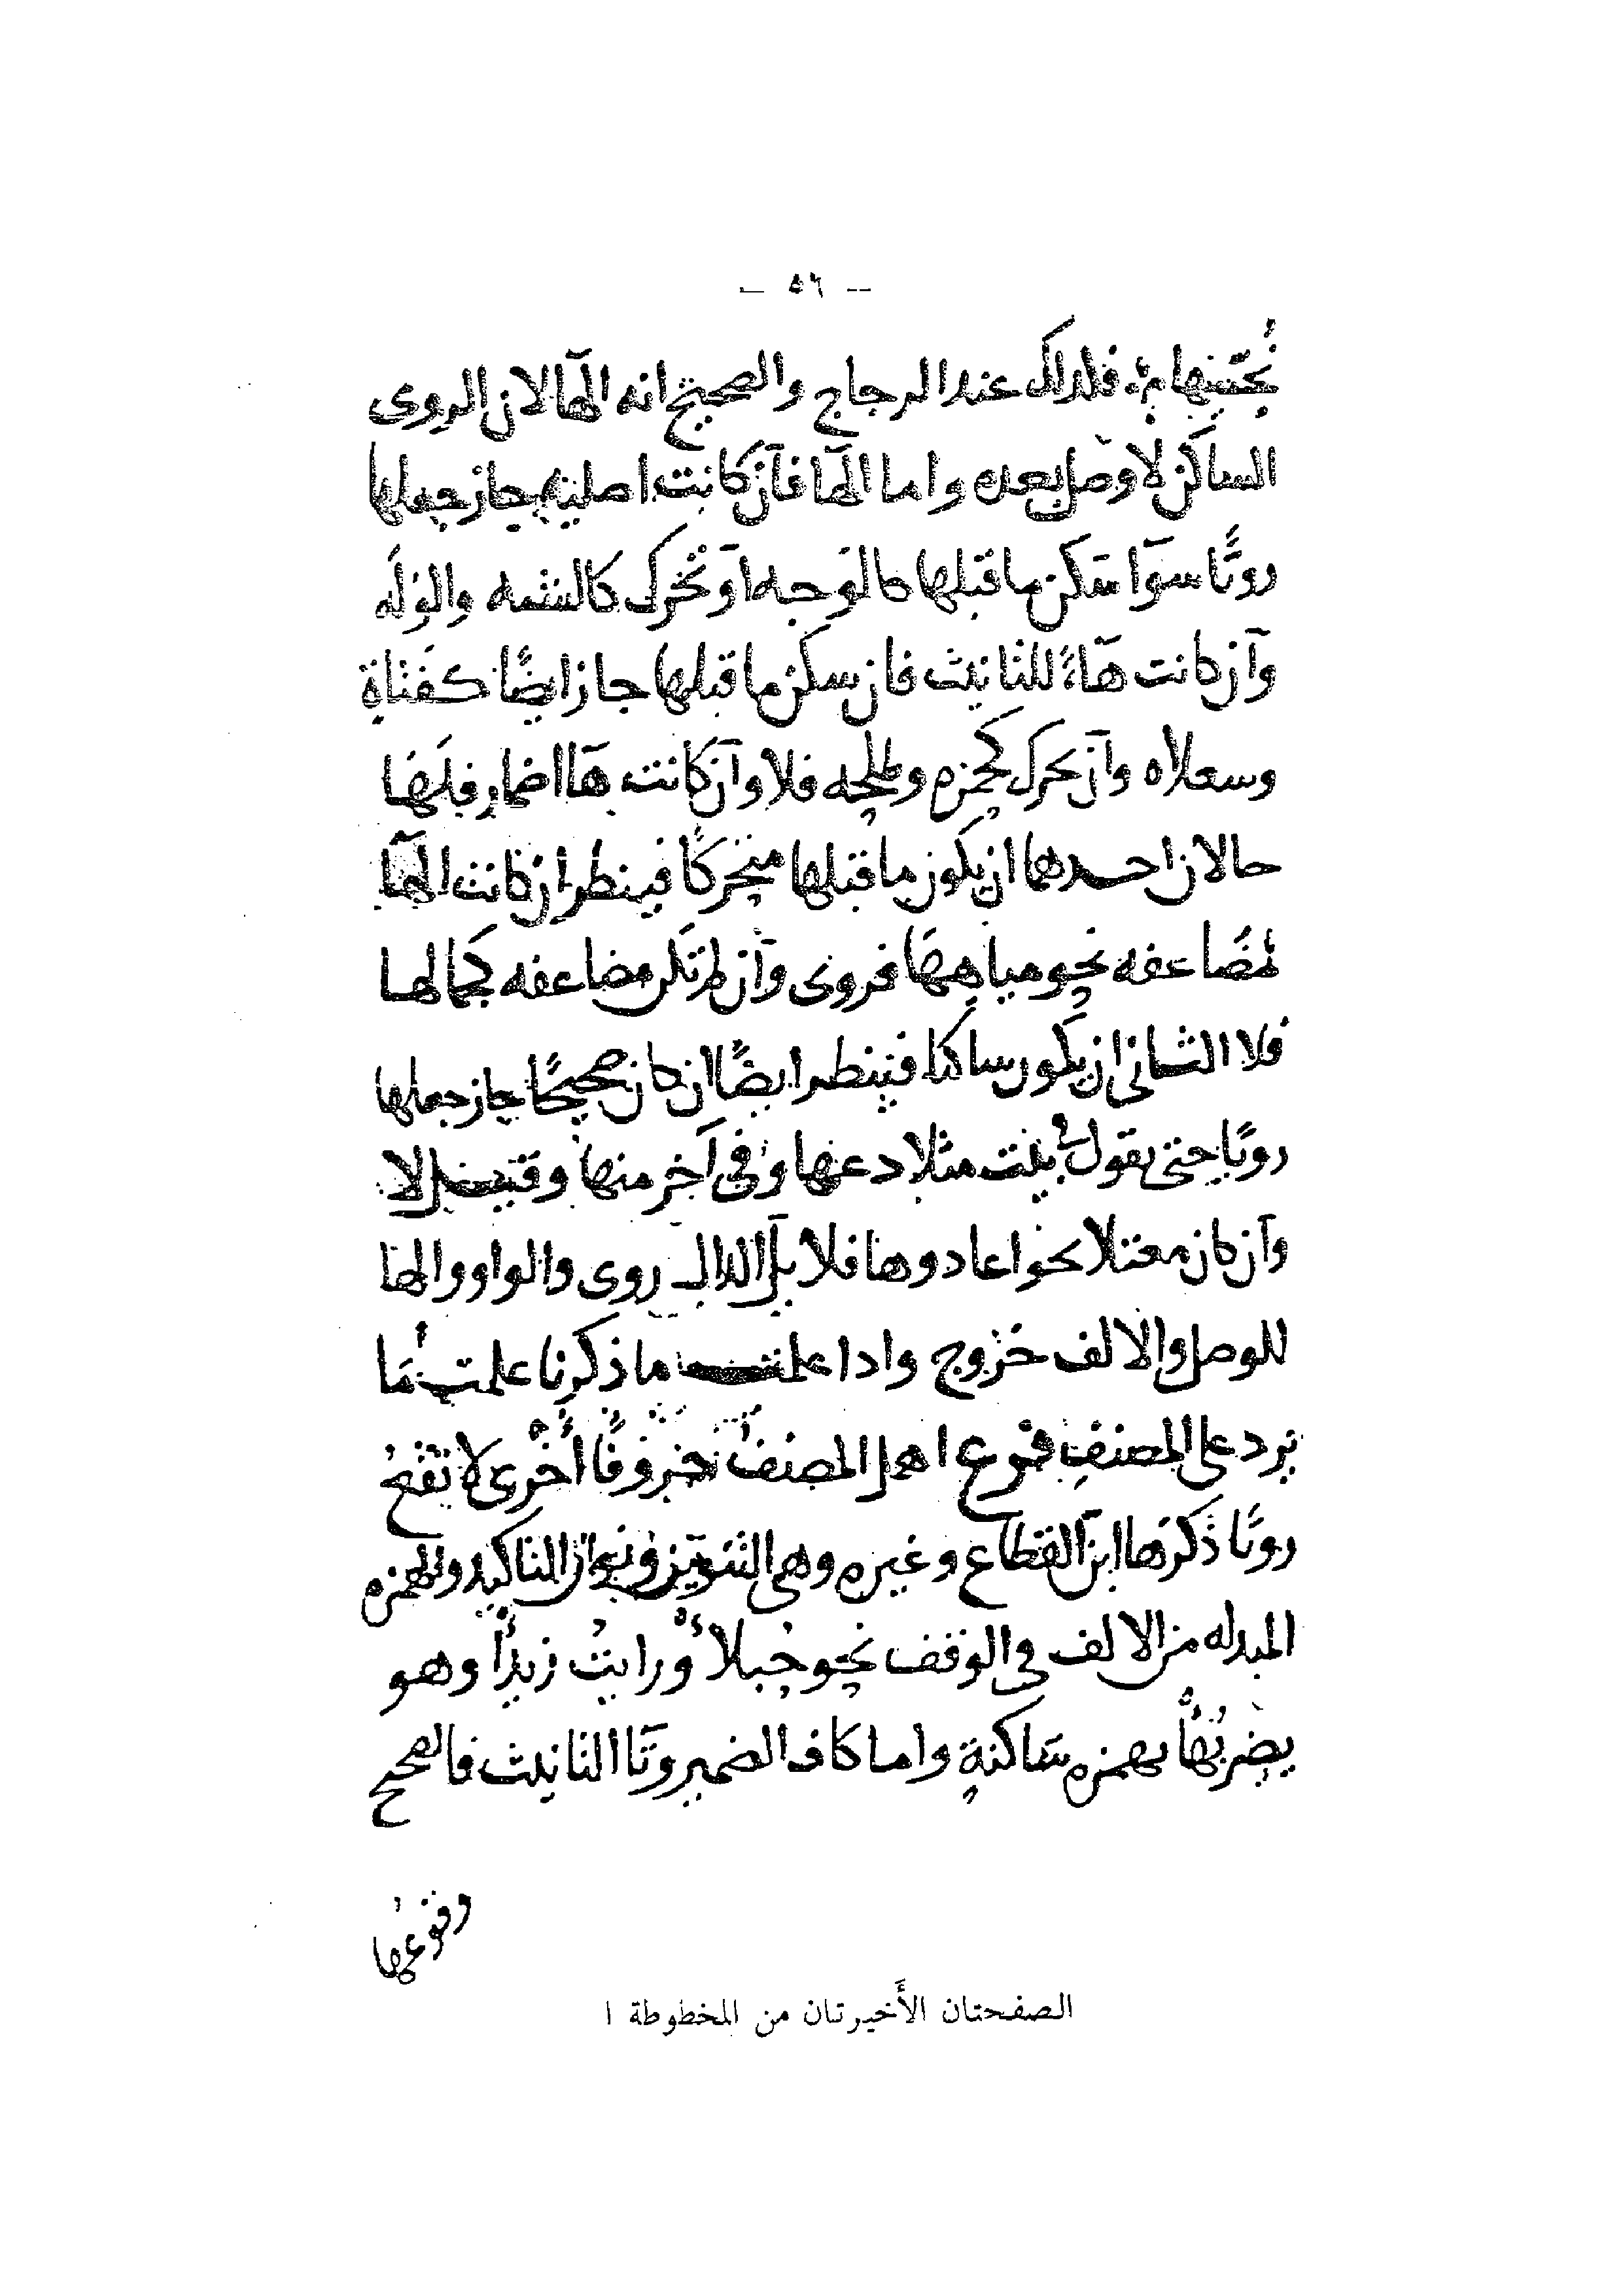 — ٥٦ —
فلذلك عند الزجاج والصحيح انه الهآ لان الروى
الساكن لا وصل بعده واما الهآ فان كانت اصلية جاز جعلها
رويًا سوآ سكن ما قبلها كالوجه او تحرك كالشبه والوله
وان كانت هآءً للتانيث فان سكن ما قبلها جاز ايضًا كفتاة
وسعلاه وان تحرك كحمزه وطلحه فلا وان كانت هآ اضمار فلها
حالان احدهما ان يكون ما قبلها متحركًا فينظر ان كانت الهآ
مضاعفه نحو مياهها فروى وان لم تكن مضاعفه كجمالها
فلا الثانى ان يكون ساكنا فينظر ايضًا ان كان صحيحًا جاز جعلها
رويًا حتى يقول فى بيت مثلا دعها وفى آخر منها وقيل لا
وان كان معتلا نحو اعادوها فلا بل الدال روى والواو والها
للوصل والالف خروج واذا علمت ما ذكرنا علمت ما
يرد على المصنف فرع اهمل المصنف حروفًا أخرى لا تقع
رويًا ذكرها ابن القطاع وغيره وهى التنوين ونون التاكيد والهمزه
المبدله من الالف فى الوقف نحو حبلأ ورايت زيدأ وهو
يضربهأ بهمزه ساكنة واما كاف الضمير وتا التانيث فالصحيح
وقوعها
الصفحتان الأخيرتان من المخطوطة ا